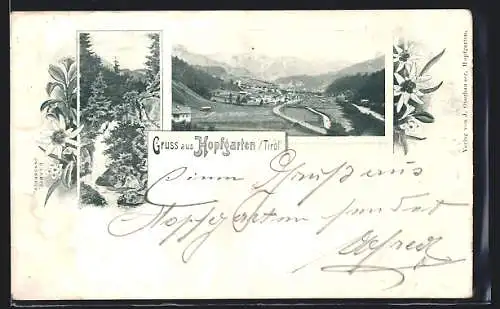 Gruss aus Hopfgarten /Tirol
Einen Gruß aus
Hopfgarten sendet
Alfred
Verlag von J. Hopfgarten.